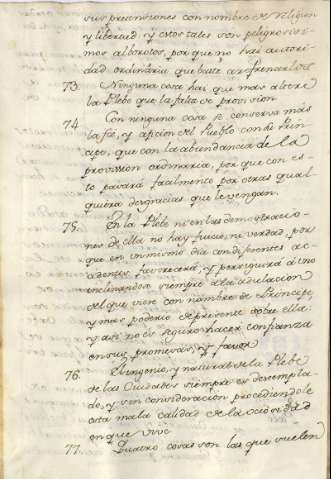 sus pretensiones con nombre de Religion
y libertad, y estos tales son peligrosissi
mos alborotos, porque no hai autori
dad ordinaria que baste a refrenarlos
73. Ninguna cosa hai que mas altere
la Plebe que la falta de provission
74. Con ninguna cosa se conserva mas
la fee, y aficion del Pueblo con el Prin
cipe, que con la abundancia de la
provission ordinaria, por que con es
to pasará facilmente por otras qual
quiera desgracias que le vengan.
75. En la Plebe ni en las demostracio-
nes de ella no hay juicio, ni verdad, por
que en un mismo dia con diferentes ac-
cidentes favorecerá, y perseguirá a uno
inclinandose siempre a la adulacion
del que viene con nombre de Principe,
y mas poderio de presente sobre ella
y assi no es seguro hacer confianza
en sus promesas, y favor
76. El ingenio, y natural de la Plebe
de las Ciudades siempre es destempla
do, y en consideracion procediendole
esta mala calidad de la ociosidad
en que vive
77. Quatro cosas son las que suelen